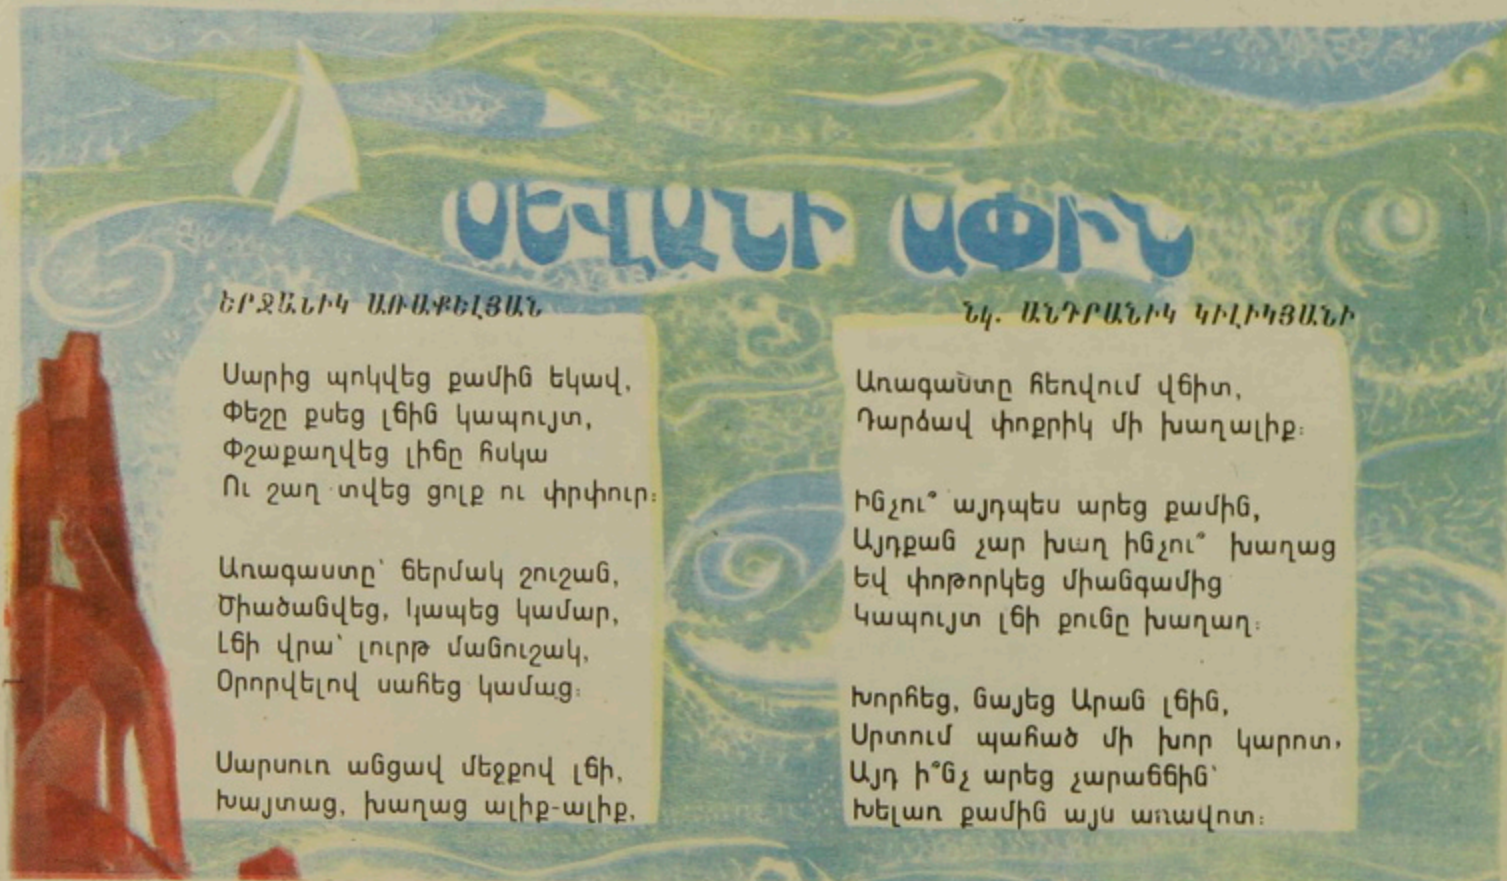 ՍԵՎԱՆԻ ԱՓԻՆ
ԵՐՋԱՆԻԿ ԱՌԱՔԵԼՅԱՆ
Սարից պոկվեց քամին եկավ,
Փեշը քսեց լճին կապույտ,
Փշաքաղվեց լիճը հսկա
Ու շաղ տվեց ցոլք ու փրփուր։
Առագաստը՝ ճերմակ շուշան,
Ծիածանվեց, կապեց կամար,
Լճի վրա՝ լուրթ մանուշակ,
Օրորվելով սահեց կամաց։
Սարսուռ անցավ մեջքով լճի,
Խայտաց, խաղաց ալիք-ալիք,
Նկ. ԱՆԴՐԱՆԻԿ ԿԻԼԻԿՅԱՆԻ
Առագաստը հեռվում վճիտ,
Դարձավ փոքրիկ մի խաղալիք։
Ինչու՞ այդպես արեց քամին,
Այդքան չար խաղ ինչու՞ խաղաց
Եվ փոթորկեց միանգամից
Կապույտ լճի քունը խաղաղ։
Խորհեց, նայեց Արան լճին,
Սրտում պահած մի խոր կարոտ,
Այդ ի՞նչ արեց չարաճճին՝
Խելառ քամին այս առավոտ։